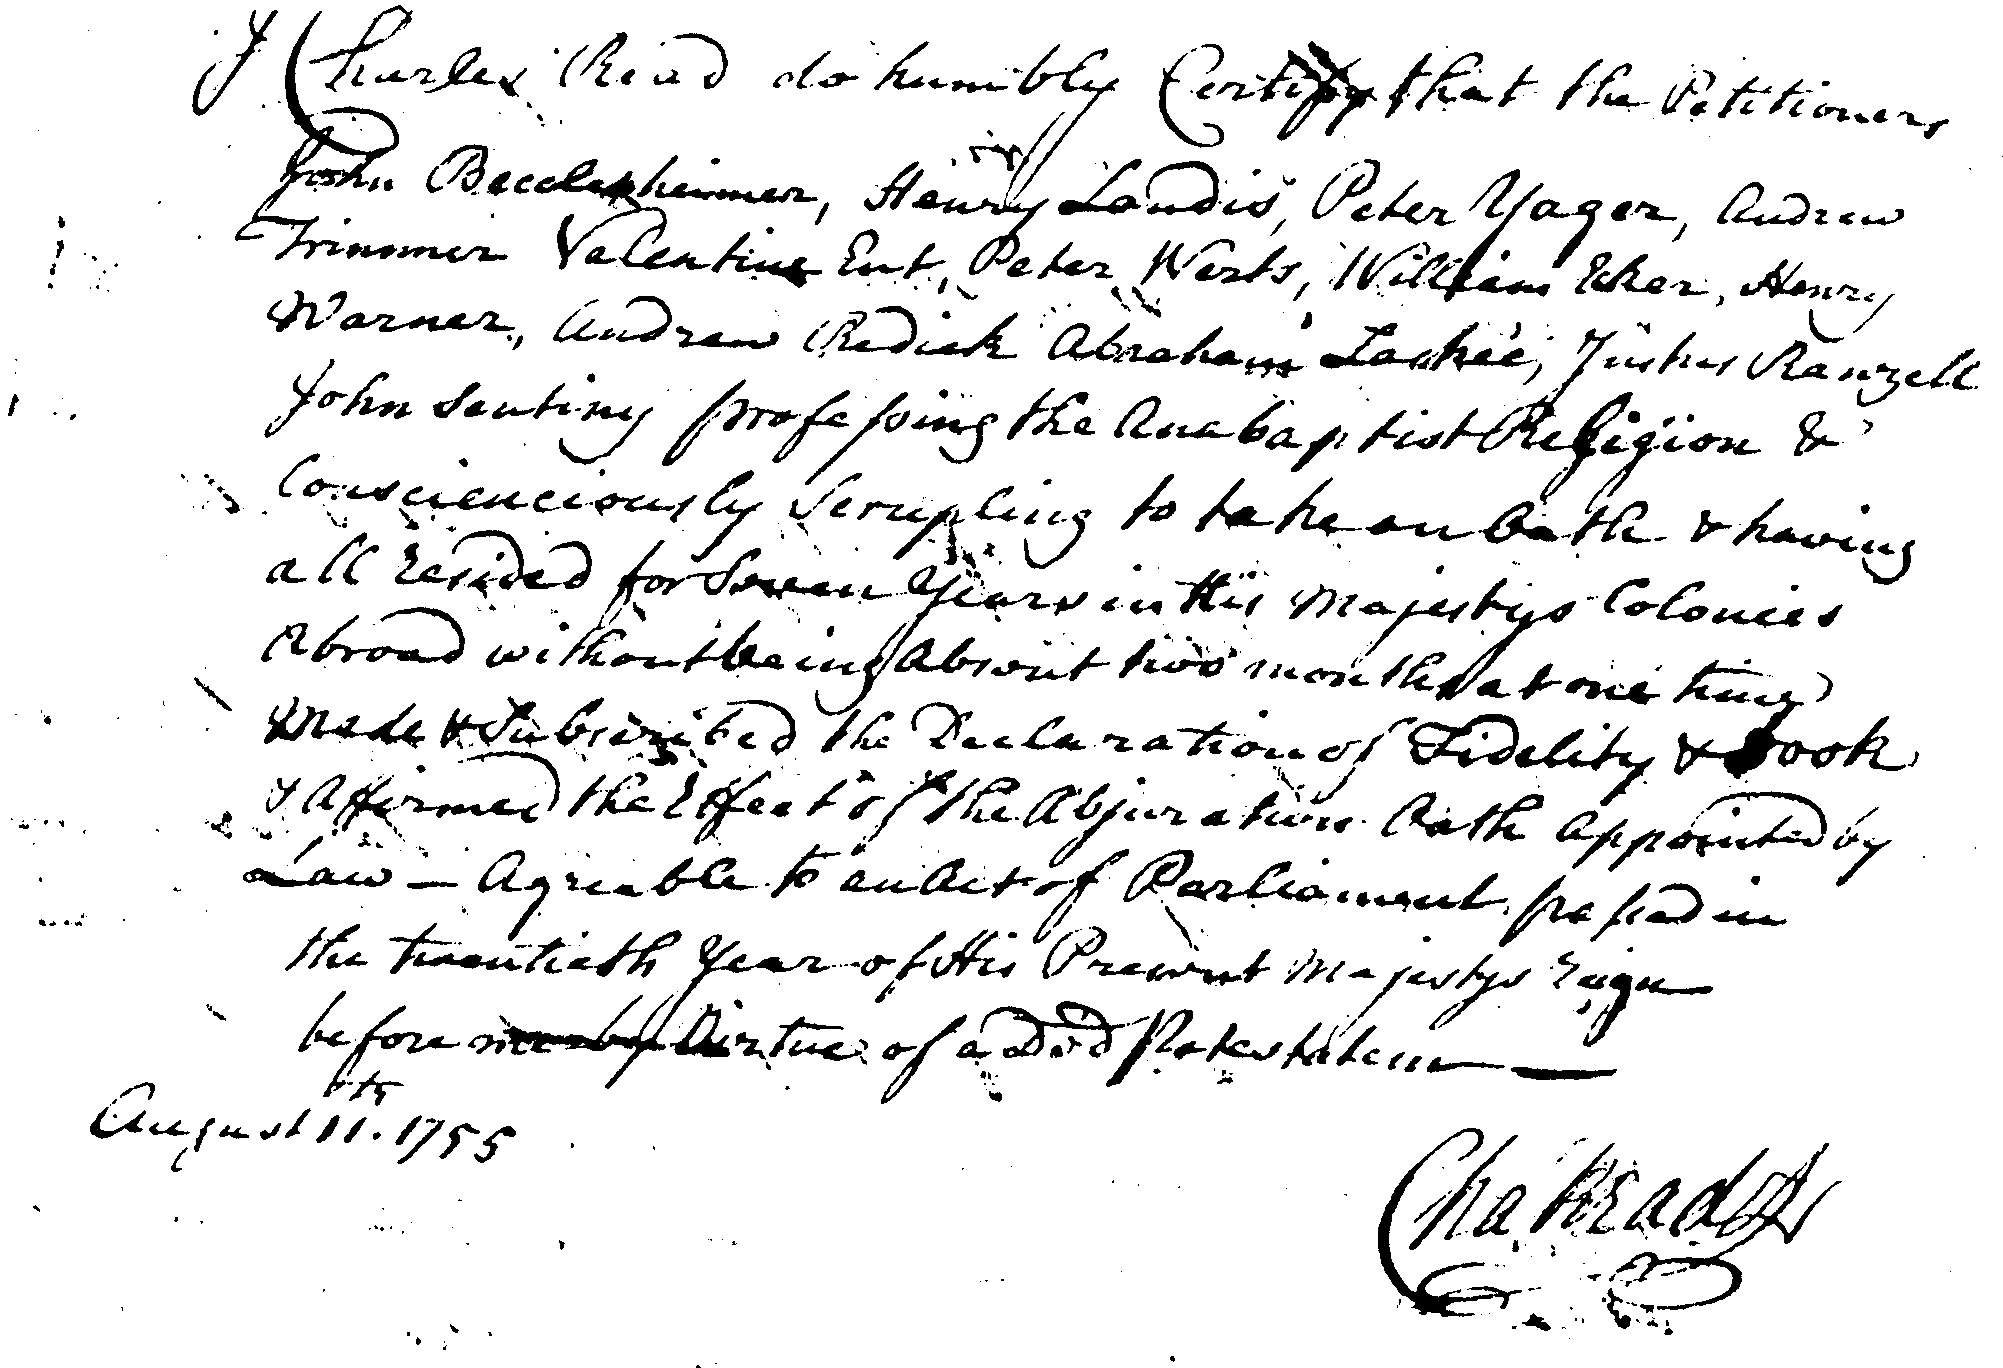 I Charles Read do humbly Certify that the Petitioners
John Beccleshimer, Henry Landis, Peter Yager, Andrew
Trimmer Valentine Ent, Peter Werts, William Eker, Henry
Warner, Andrew Redick Abraham Lashee, Justus Ranzell
John Sentiny professing the Anabaptist Religion &
Conscienciously Scrupling to take an Oath & having
all resided for Seven Years in His Majestys Colonies
Abroad without being Absent two months at one time
made & Subscribed the Declaration of Fidelity & took
& Affirmed the Effect of the Abjuration Oath appointed by
Law — Agreable to an Act of Parliament passed in
the twentieth Year of His Present Majestys reign
before me by Virtue of a Ded Potestatem —
August 11th. 1755
Cha Read